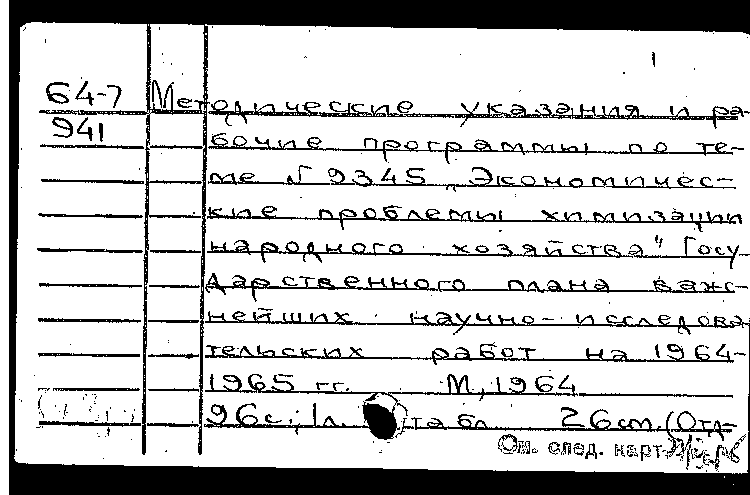 1
64-7 Методические указания и ра-
941 бочие программы по те-
ме N 9345 „Экономичес-
кие проблемы химизации
народного хозяйства" Госу-
дарственного плана важ-
нейших научно-исследова
тельских работ на 1964-
1965 гг. М, 1964
96с; 1л. табл 26см. (Отд-
См. след. карт